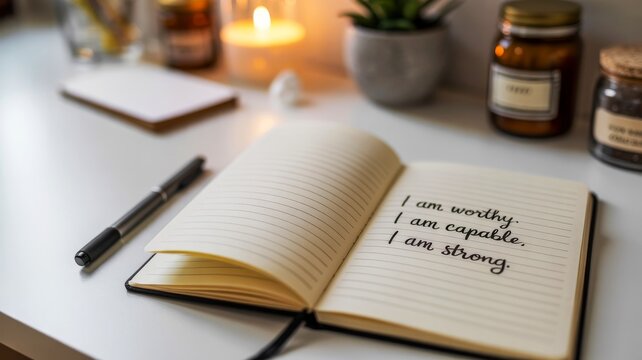 I am worthy.
I am capable.
I am strong.